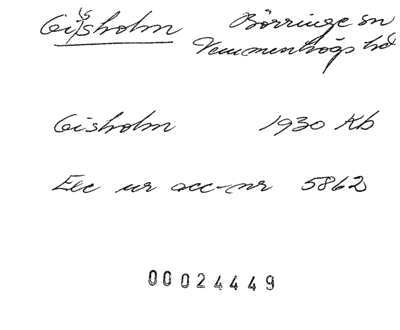 Gisholm Börringe sn
Vemmenhögs hd
Gisholm 1930 Kb
Exc ur acc-nr 5862
00024449